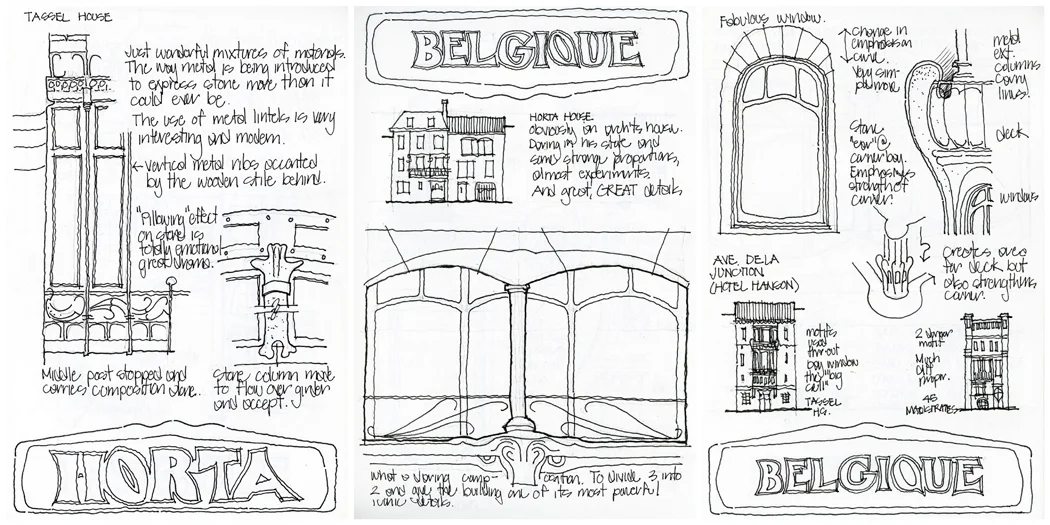 TASSEL HOUSE
Just wonderful mixtures of materials.
The way metal is being introduced
to express stone more than it
could ever be.
The use of metal lintels is very
interesting and modern.
←vertical metal ribs accented
by the wooden stile behind.
"Pillowing" effect
on stone is
totally emotional
great drama.
Middle post stopped and
carries composition alone.
Stone column made
to flow over girder
and accept.
HORTA
BELGIQUE
HORTA HOUSE
obviously an archt's house.
Daring in his state and
some strange proportions,
almost experiments.
And great, GREAT details
What a daring comp-osition. To divide 3 into
2 and give the building one of its most powerful
iconic details.
Fabulous window.
change in
emphasis on
curve.
Very sim-
ple move
metal
ext.
columns
carry
lines.
Stone
"ear" @
corner bay.
Emphasizes
strength of
corner.
deck
windows
Creates over
for deck but
also strengthens
corner.
AVE. DE LA
JUNCTION
(HOTEL HANSON)
motifs
used
thru-out
bay window
the "big
cell"
TASSEL
HS.
2 window
motif
Much
diff
propor.
48
MAGISTRATES
BELGIQUE